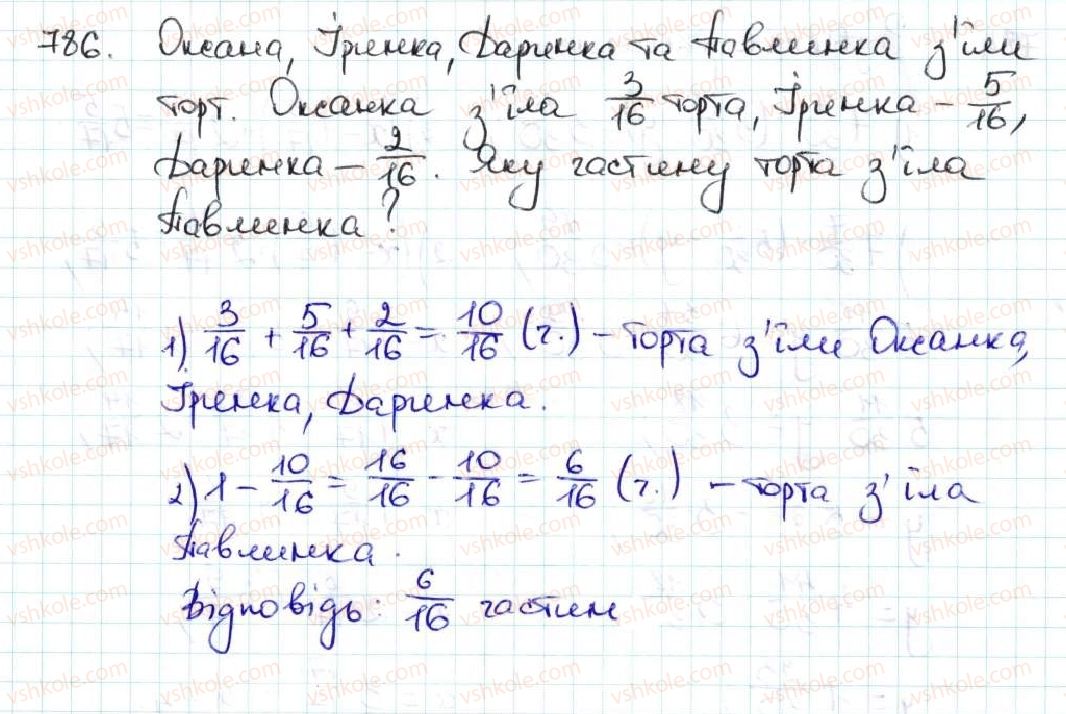 786. Оксана, Іринка, Даринка та Павлинка з'їли
торт. Оксанка з'їла 3/16 торта, Іринка – 5/16,
Даринка – 2/16. Яку частину торта з'їла
Павлинка?
1) 3/16 + 5/16 + 2/16 = 10/16 (ч.) – торта з'їли Оксанка,
Іринка, Даринка.
2) 1 – 10/16 = 16/16 - 10/16 = 6/16 (ч.) – торта з'їла
Павлинка.
Відповідь: 6/16 частин